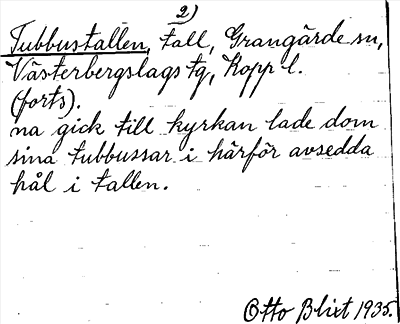 2)
Tubbustallen, tall, Grangärde sn,
Västerbergslags tg, Kopp l.
(forts).
na gick till kyrkan lade dom
sina tubbussar i härför avsedda
hål i tallen.
Otto Blixt 1935.